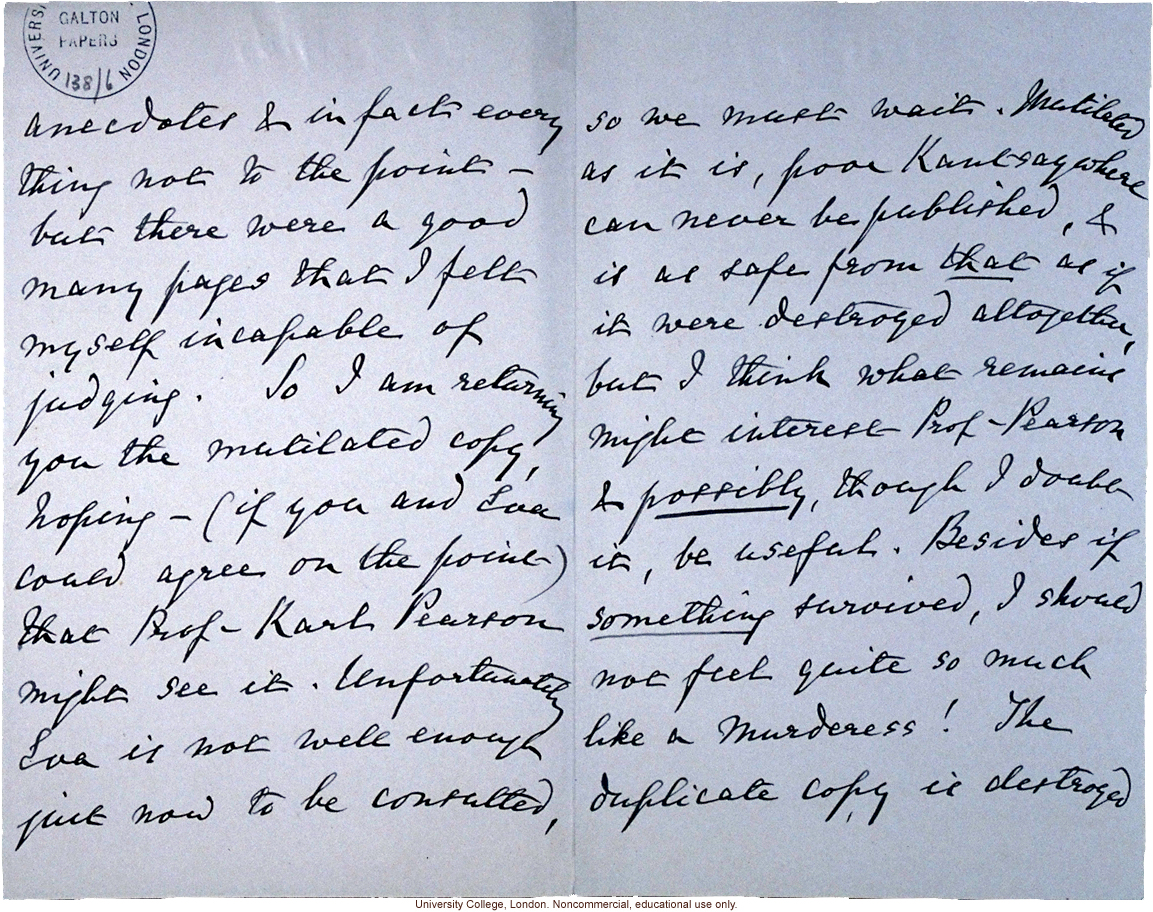 UNIVERS
LONDON
GALTON
PAPERS
138/6
anecdotes & in fact every
thing not to the point –
but there were a good
many pages that I felt
myself incapable of
judging. So I am returning
you the mutilated copy,
hoping – (if you and Eva
could agree on the point)
that Prof- Karl Pearson
might see it. Unfortunately
Eva is not well enough
just now to be consulted,
so we must wait. Mutilated
as it is, poor Kantsaywhere
can never be published, &
is as safe from that as if
it were destroyed altogether,
but I think what remains
might interest Prof- Pearson
& possibly, though I doubt
it, be useful. Besides if
something survived, I should
not feel quite so much
like a Murderess! The
duplicate copy is destroyed
University College, London. Noncommercial, educational use only.